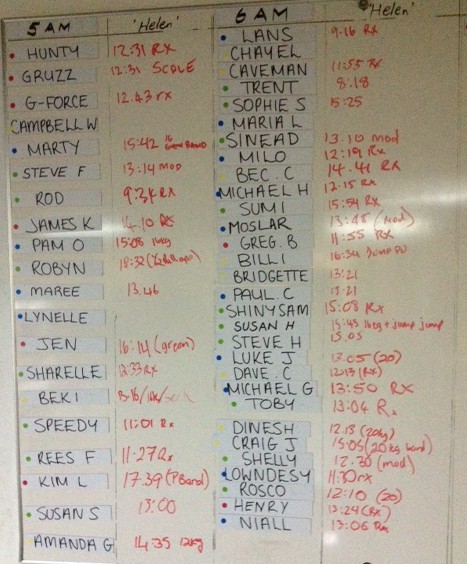 5 AM 'Helen'
HUNTY 12:31 Rx
GRUZZ 12:31 SCALE
G-FORCE 12.43 rx
CAMPBELL W
MARTY 15:42
STEVE F 13:14 mod
ROD
JAMES K 14.10
PAM O 15:08 16kg
ROBYN 18:32
MAREE 13.46
LYNELLE
JEN 16:14 (green)
SHARELLE Rx
BEKI
SPEEDY 11:01 Rx
REES F 11.27 Rx
KIM L 17.39 (P Band)
SUSAN S 13:00
AMANDA G 14:35 12kg
6 AM 'Helen'
LANS 9.16 Rx
CHAYEL
CAVEMAN 11:55 Rx
TRENT 8:18
SOPHIE S
MARIA L
SINEAD 13.10 mod
MILO 12:19 Rx
BEC. C 14.41 Rx
MICHAEL H 12.15 Rx
SUMI 15:54 Rx
MOSLAR 13:48 (mod)
GREG. B 11:55 Rx
BILLI 16:34
BRIDGETTE 13:21
PAUL. C 13.21
SHINY SAM 15:08 Rx
SUSAN H 15:43 16kg + jump jump
STEVE H 15.05
LUKE J 13:05 (20)
DAVE. C 12:13 (Rx)
MICHAEL G 13:50 Rx
TOBY 13:04 Rx
DINESH 12.18 (20kg)
CRAIG J 15:05 (20kg band)
SHELLY 12.30 (mod)
LOWNDESY 11:30 rx
ROSCO 12:10 (20)
HENRY 13:24 (Rx)
NIALL 13:06 Rx